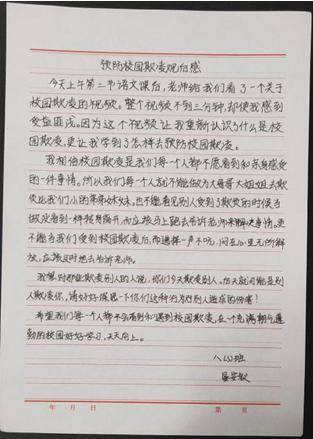 预防校园欺凌观后感
今天上午第二节语文课后，老师给我们看了一个关于
校园欺凌的视频。整个视频不到三分钟，却使我感到
受益匪浅。因为这个视频让我重新认识了什么是校
园欺凌，更让我学到了怎样去预防校园欺凌。
我相信校园欺凌是我们每一个人都不愿看到和亲身感受
的一件事情。所以我们每一个人就不能做为大哥哥大姐姐去欺
凌比我们小的弟弟妹妹，也不能看见别人受到了欺凌的时候当
做没看到一样转身离开，而应该马上跑去告诉老师来解决事情。更
不能当我们受到校园欺凌后，而选择一声不吭，闷在心里无所解
放，应第一时地去告诉老师。
我想对那些欺凌别人的人说，你们今天欺凌别人，后天就可能是别
人欺凌你，请好好反思一下你们这种行为给别人造成的伤害！
希望我们每一个人都不会看到和遇到校园欺凌，在一个充满朝气蓬
勃的校园好好学习，天天向上。
八(3)班
年 月 日 第 页